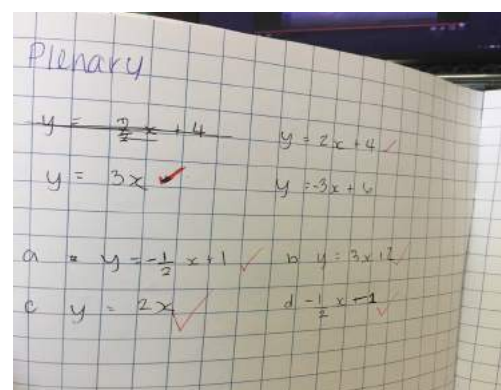 Plenary
y = x + 4
y = 2x + 4
y = 3x
y = -3x + 6
a y = -1/2 x + 1
b y = 3x + 2
c y = 2x
d -1/2 x - 1